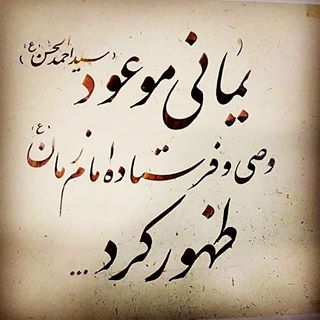 (سید احمدالحسن (ع))
یمانی موعود
وصی و فرستاده امام زمان (ع)
ظهور کرد...